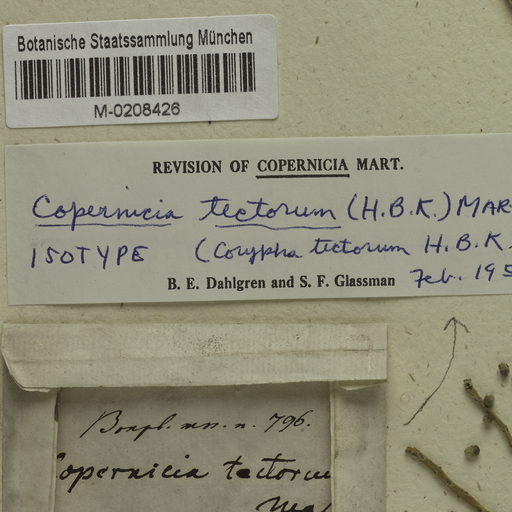 Botanische Staatssammlung München
M-0208426
REVISION OF COPERNICIA MART.
Copernicia tectorum (H.B.K.) MAR
ISOTYPE (Corypha tectorum H.B.K.
B. E. Dahlgren and S. F. Glassman Feb. 195
Bonpl. mss. n. 796.
opernicia tectoru
Ma